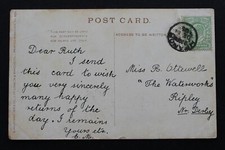 POST CARD.
Dear Ruth
I send
this card to wish
you very sincerely
many happy
returns of the
day. I remain
Yours etc.
Miss R.
"The Waterworks"
Ripley
Nr Derby